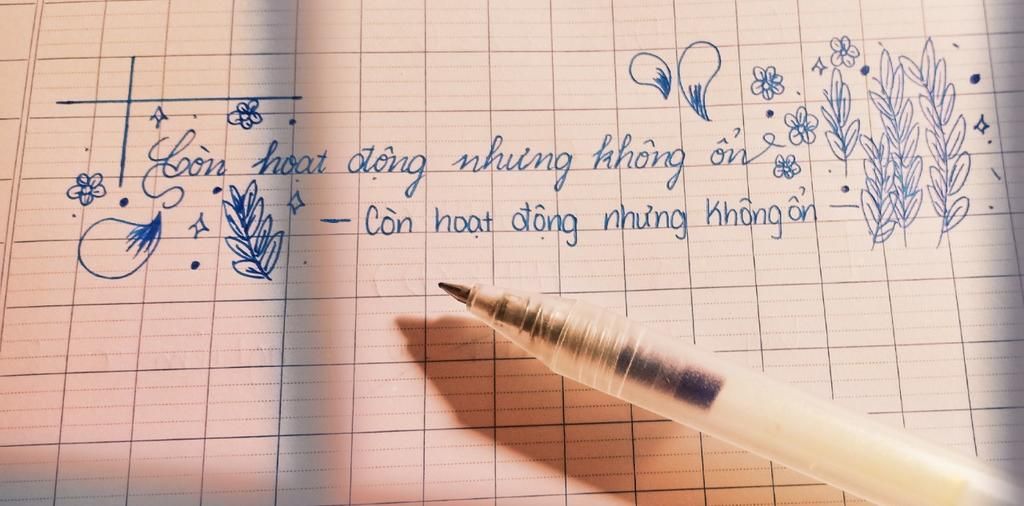 Còn hoạt động nhưng không ổn
— Còn hoạt động nhưng không ổn —